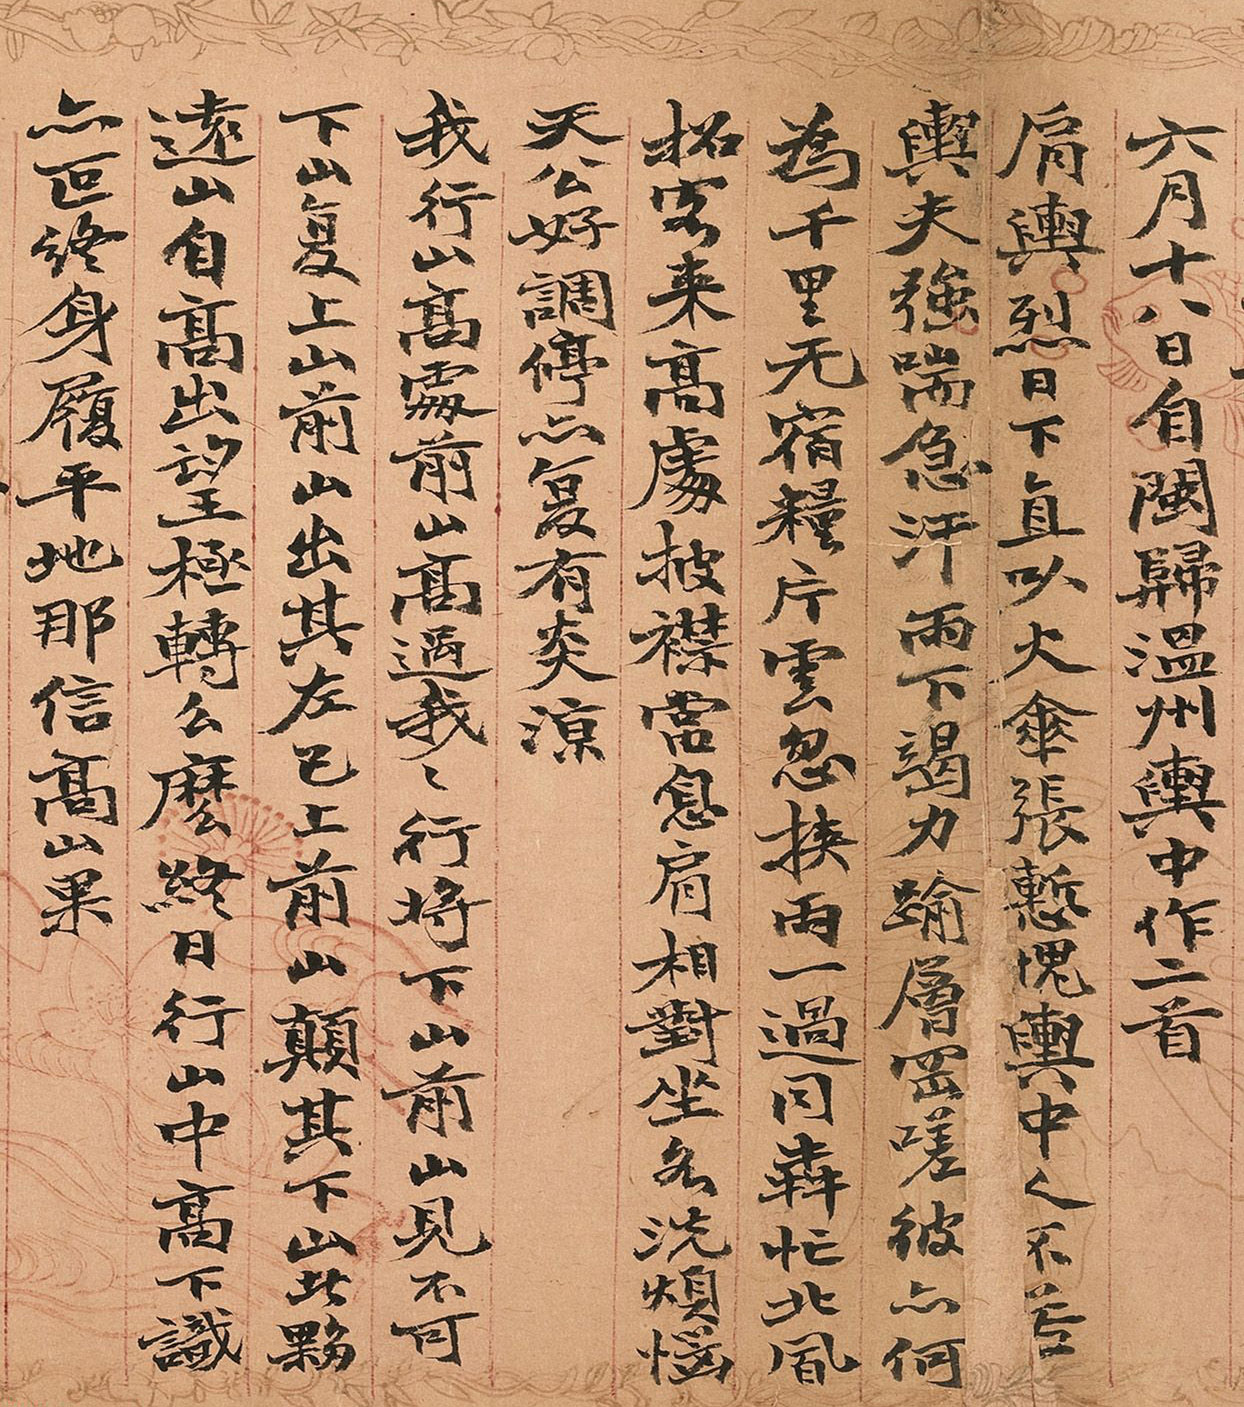 六月十八日自閩歸溫州輿中作二首
肩輿烈日下直以火傘張慙愧輿中人不若
輿夫強喘急汗雨下竭力踰層岡嗟彼亦何
為千里无宿糧片雲忽挾雨一過同犇忙北風
招客來高處披襟當息肩相對坐各洗煩惱
天公好調停亦复有炎涼
我行山高處前山高過我〻行將下山前山見不可
下山复上山前山出其左已上前山顛其下山此夥
遠山自高出望極轉么麼終日行山中高下識
亦叵終身履平地那信高山果